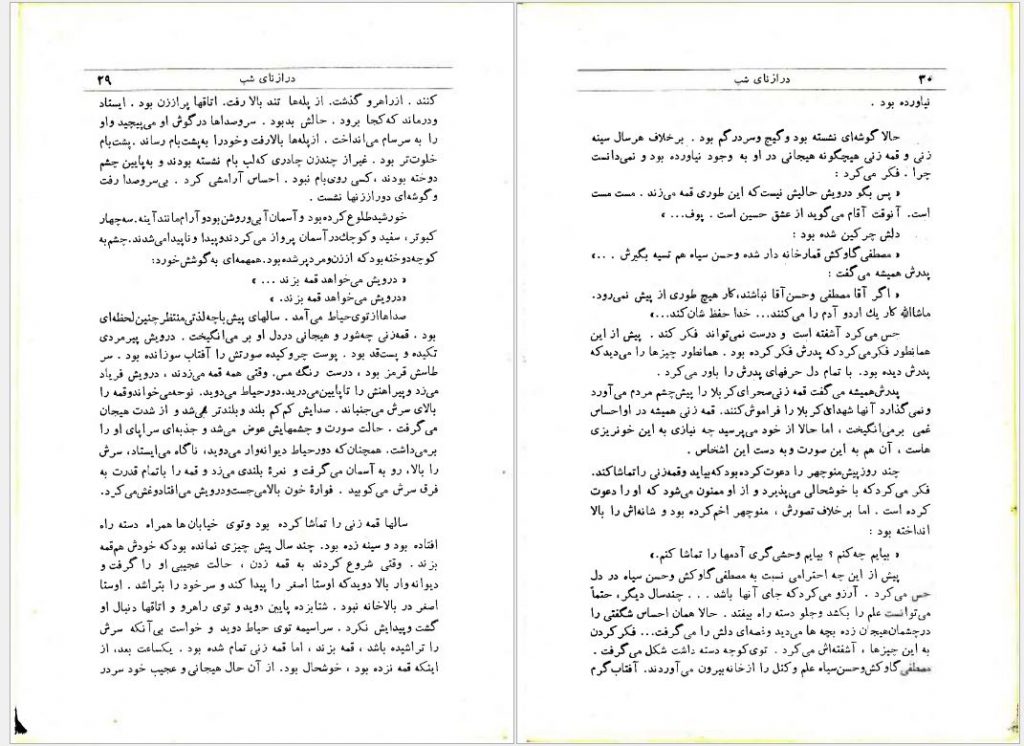 درازنای شب ۲۹
کنند . ازراهرو گذشت. از پله‌ها تند بالا رفت. اتاقها پراززن بود . ایستاد
ودرماند که‌کجا برود . حالش بدبود . سروصداها درگوش او می‌پیچید واو
را به سرسام می‌انداخت . ازپله‌ها بالارفت وخودرا به‌پشت‌بام رساند . پشت‌بام
خلوت‌تر بود . غیراز چندزن چادری که‌لب بام نشسته بودند و به‌پایین چشم
دوخته بودند ، کسی روی‌بام نبود . احساس آرامشی کرد . بی‌سروصدا رفت
وگوشه‌ای دوراززنها نشست .
خورشیدطلوع کرده‌بود و آسمان آبی‌وروشن‌بودو آرام‌مانندآینه. سه‌چهار
کبوتر ، سفید و کوچك‌درآسمان پرواز می‌کردندوپیدا وناپیدا می‌شدند. چشم‌به
کوچه‌دوخته‌بودکه اززن‌ومردپرشده‌بود. همهمه‌ای به‌گوشش‌خورد:
« درویش می‌خواهد قمه بزند ... »
«درویش می‌خواهد قمه بزند. »
صداهاازتوی حیاط می‌آمد . سالهای پیش‌باچه‌لذتی‌منتظرچنین‌لحظه‌ای
بود . قمه‌زنی چه‌شور و هیجانی دردل او بر می‌انگیخت . درویش پیرمردی
تکیده و پست‌قد بود . پوست چروکیده صورتش را آفتاب سوزانده بود . سر
طاسش قرمز بود ، درست رنگ مس. وقتی همه قمه می‌زدند ، درویش فریاد
می‌زد وپیراهنش را تاپایین‌می‌درید. دورحیاط می‌دوید. نوحه‌می‌خواندوقمه را
بالای سرش می‌جنباند . صدایش کم‌کم بلند وبلندتر می‌شد و از شدت هیجان
می‌گرفت . حالت صورت و چشمهایش عوض می‌شد و جذبه‌ای سراپای او را
برمی‌داشت. همچنان‌که دورحیاط دیوانه‌وار می‌دوید، ناگاه می‌ایستاد، سرش
را بالا، رو به آسمان می‌گرفت و نعرهٔ بلندی می‌زد و قمه را باتمام قدرت به
فرق سرش می‌کوبید . فوارهٔ خون بالامی‌جست‌ودرویش می‌افتادوغش‌می‌کرد.
سالها قمه زنی را تماشا کرده بود وتوی خیابان‌ها همراه دسته راه
افتاده بود و سینه زده بود. چند سال پیش چیزی نمانده بودکه خودش هم‌قمه
بزند . وقتی شروع کردند به قمه زدن ، حالت عجیبی او را گرفت و
دیوانه‌وار بالا دویدکه اوستا اصغر را پیدا کند و سرخود را بتراشد . اوستا
اصغر در بالاخانه نبود . شتابزده پایین دوید و توی راهرو و اتاقها دنبال او
گشت وپیدایش نکرد . سراسیمه توی حیاط دوید و خواست بی‌آنکه سرش
را تراشیده باشد ، قمه بزند ، اما قمه زنی تمام شده بود . یکساعت بعد، از
اینکه قمه نزده بود ، خوشحال بود. از آن حال هیجانی و عجیب خود سردر
درازنای شب ۳۰
نیاورده بود .
حالا گوشه‌ای نشسته بود وگیج وسردرگم بود . برخلاف هرسال سینه
زنی و قمه زنی هیچگونه هیجانی در او به وجود نیاورده بود و نمی‌دانست
چرا . فکر می‌کرد :
« پس بگو درویش حالیش نیست‌که این طوری قمه می‌زند . مست مست
است. آنوقت آقام می‌گوید از عشق حسین است . پوف... »
دلش چرکین شده بود :
« مصطفی‌گاوکش قمارخانه دار شده وحسن سیاه هم تسبه بگیرش . ..»
پدرش همیشه می‌گفت :
« اگر آقا مصطفی وحسن‌آقا نباشند،کار هیچ طوری از پیش نمی‌رود.
ماشاالله کار یك اردو آدم را می‌کنند... خدا حفظ شان‌کند...»
حس می‌کرد آشفته است و درست نمی‌تواند فکر کند . پیش از این
همانطور فکرمی‌کردکه پدرش فکرکرده بود . همانطور چیزها را می‌دیدکه
پدرش دیده بود. با تمام دل حرفهای پدرش را باور می‌کرد .
پدرش‌همیشه می‌گفت قمه زنی‌صحرای‌کربلا را پیش‌چشم مردم می‌آورد
ونمی‌گذارد آنها شهدای‌کربلا را فراموش‌کنند. قمه زنی همیشه در اواحساس
غمی برمی‌انگیخت ، اما حالا از خود می‌پرسید چه نیازی به این خونریزی
هاست ، آن هم به این صورت وبه دست این اشخاص .
چند روزپیش‌منوچهر را دعوت کرده‌بودکه‌بیاید وقمه‌زنی راتماشاکند.
فکر می‌کردکه با خوشحالی می‌پذیرد و از او ممنون می‌شود که او را دعوت
کرده است . اما برخلاف تصورش ، منوچهر اخم‌کرده بود و شانه‌اش را بالا
انداخته بود :
« بیایم چه‌کنم ؟ بیایم وحشی‌گری آدمها را تماشا کنم.»
پیش از این چه احترامی نسبت به مصطفی‌گاوکش وحسن سیاه در دل
حس می‌کرد . آرزو می‌کردکه جای آنها باشد . . . چندسال دیگر، حتماً
می‌توانست علم را بکشد وجلو دسته راه بیفتد . حالا همان احساس شگفتی را
درچشمان‌هیجان زده بچه ها می‌دید وغصه‌ای دلش را می‌گرفت... فکرکردن
به این چیزها ، آشفته‌اش می‌کرد . توی‌کوچه دسته داشت شکل می‌گرفت .
مصطفی‌گاوکش‌وحسن‌سیاه علم وکتل را ازخانه‌بیرون می‌آوردند. آفتاب‌گرم